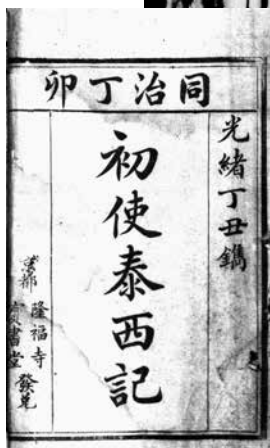 同治丁卯
光緒丁丑鐫
初使泰西記
隆福寺
書堂發兌